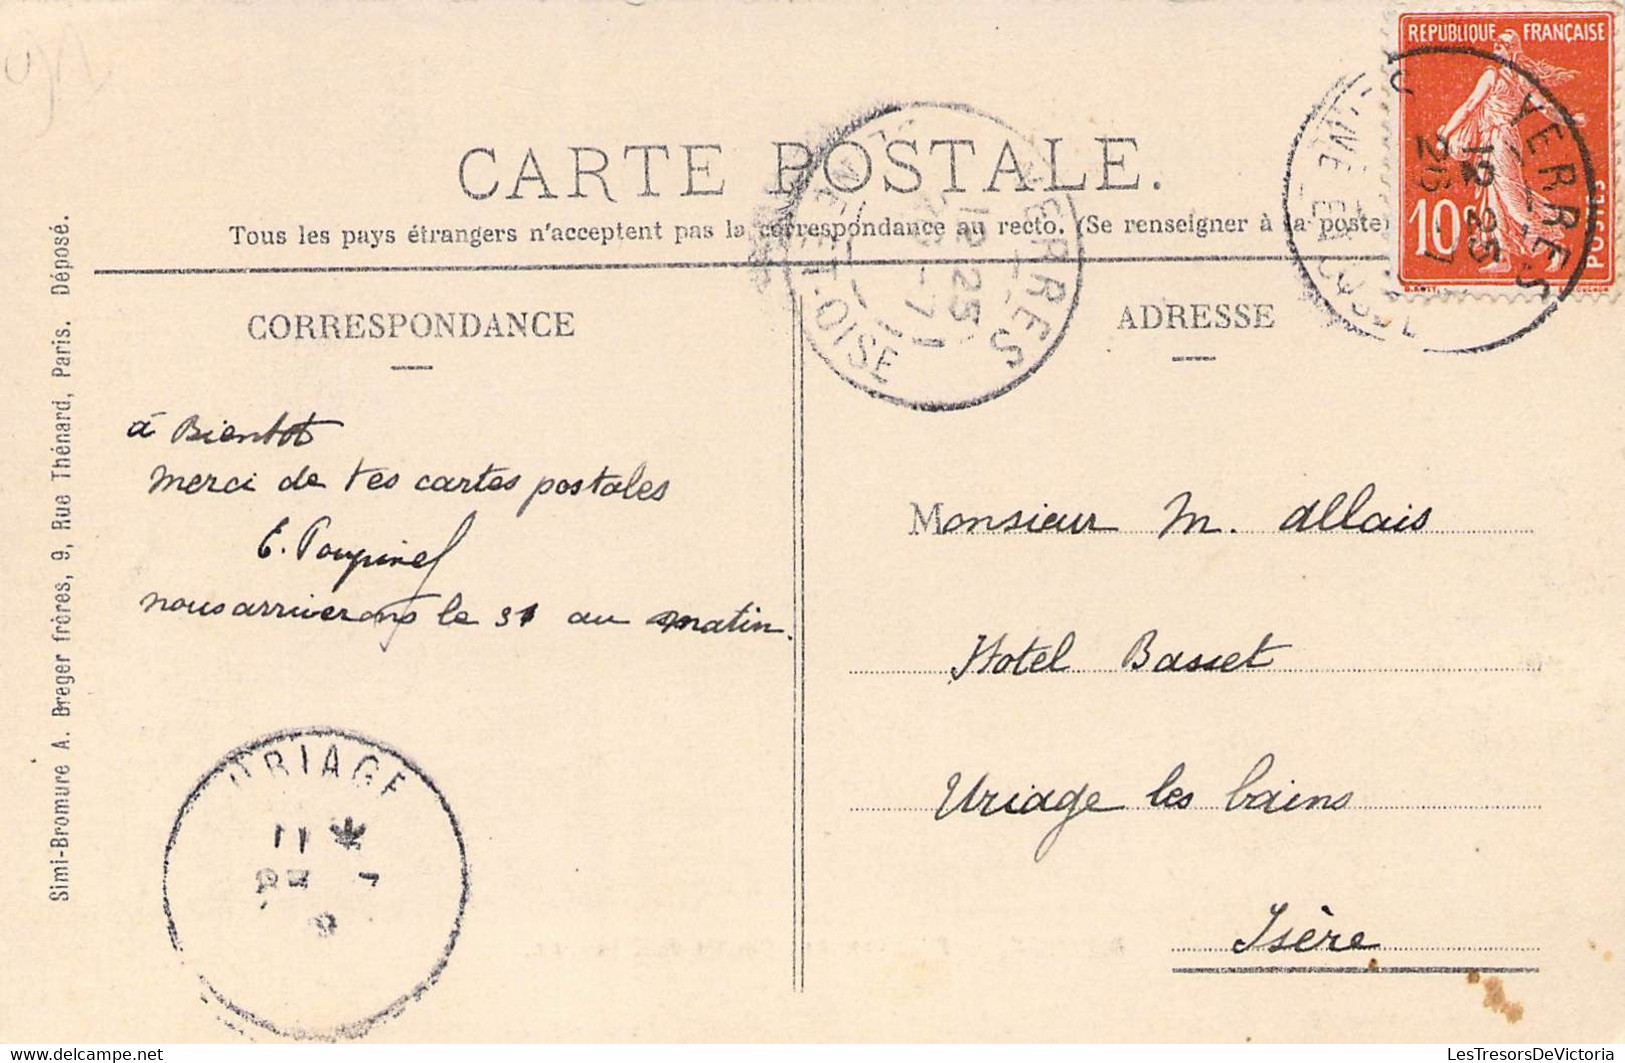 REPUBLIQUE FRANÇAISE
10
POSTES
YERRES
12 25
CARTE POSTALE.
Tous les pays étrangers n'acceptent pas la correspondance au recto. (Se renseigner à la poste)
YERRES
12 25
26-7
11
SEINE-ET-OISE
CORRESPONDANCE
ADRESSE
à Bientot
merci de tes cartes postales
E. Poupinel
nous arriverons le 31 au matin.
Monsieur M. Allais
Hotel Basset
Uriage les bains
Isère
URIAGE
11
Simi-Bromure A. Breger frères, 9, Rue Thénard, Paris. Déposé.
delcampe.net
LesTresorsDeVictoria